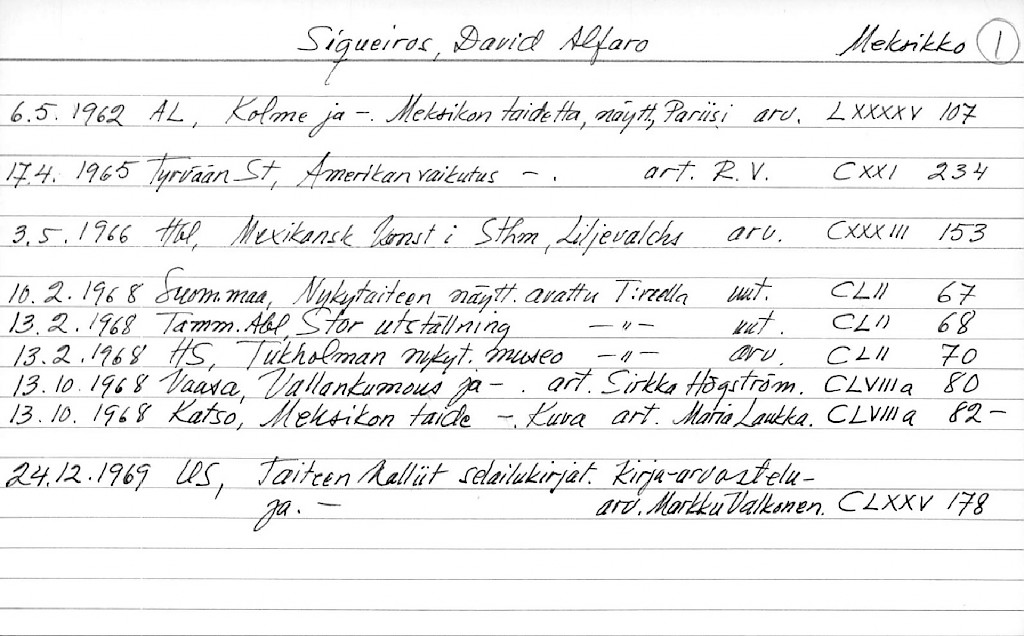 Siqueiros, David Alfaro Meksikko 1
6.5. 1962 AL, Kolme ja -. Meksikon taidetta, näytt, Pariisi arv. LXXXXV 107
17.4. 1965 Tyrvään St, Amerikan vaikutus - . art. R.V. CXXI 234
3.5.1966 Hbl, Mexikansk konst i Sthm, Liljevalchs arv. CXXXIII 153
10.2.1968 Suom.maa, Nykytaiteen näytt. avattu T:reella uut. CLII 67
13.2.1968 Tamm.Abl, Stor utställning -"- uut. CLII 68
13.2.1968 HS, Tukholman nykyt. museo -"- arv. CLII 70
13.10.1968 Vaasa, Vallankumous ja - . art. Sirkka Högström. CLVIIIa 80
13.10.1968 Katso, Meksikon taide -. Kuva art. Maria Laukka. CLVIIIa 82-
24.12.1969 US, Taiteen kalliit selailukirjat. Kirja-arvostelu-
ja. - arv. Markku Valkonen. CLXXV 178